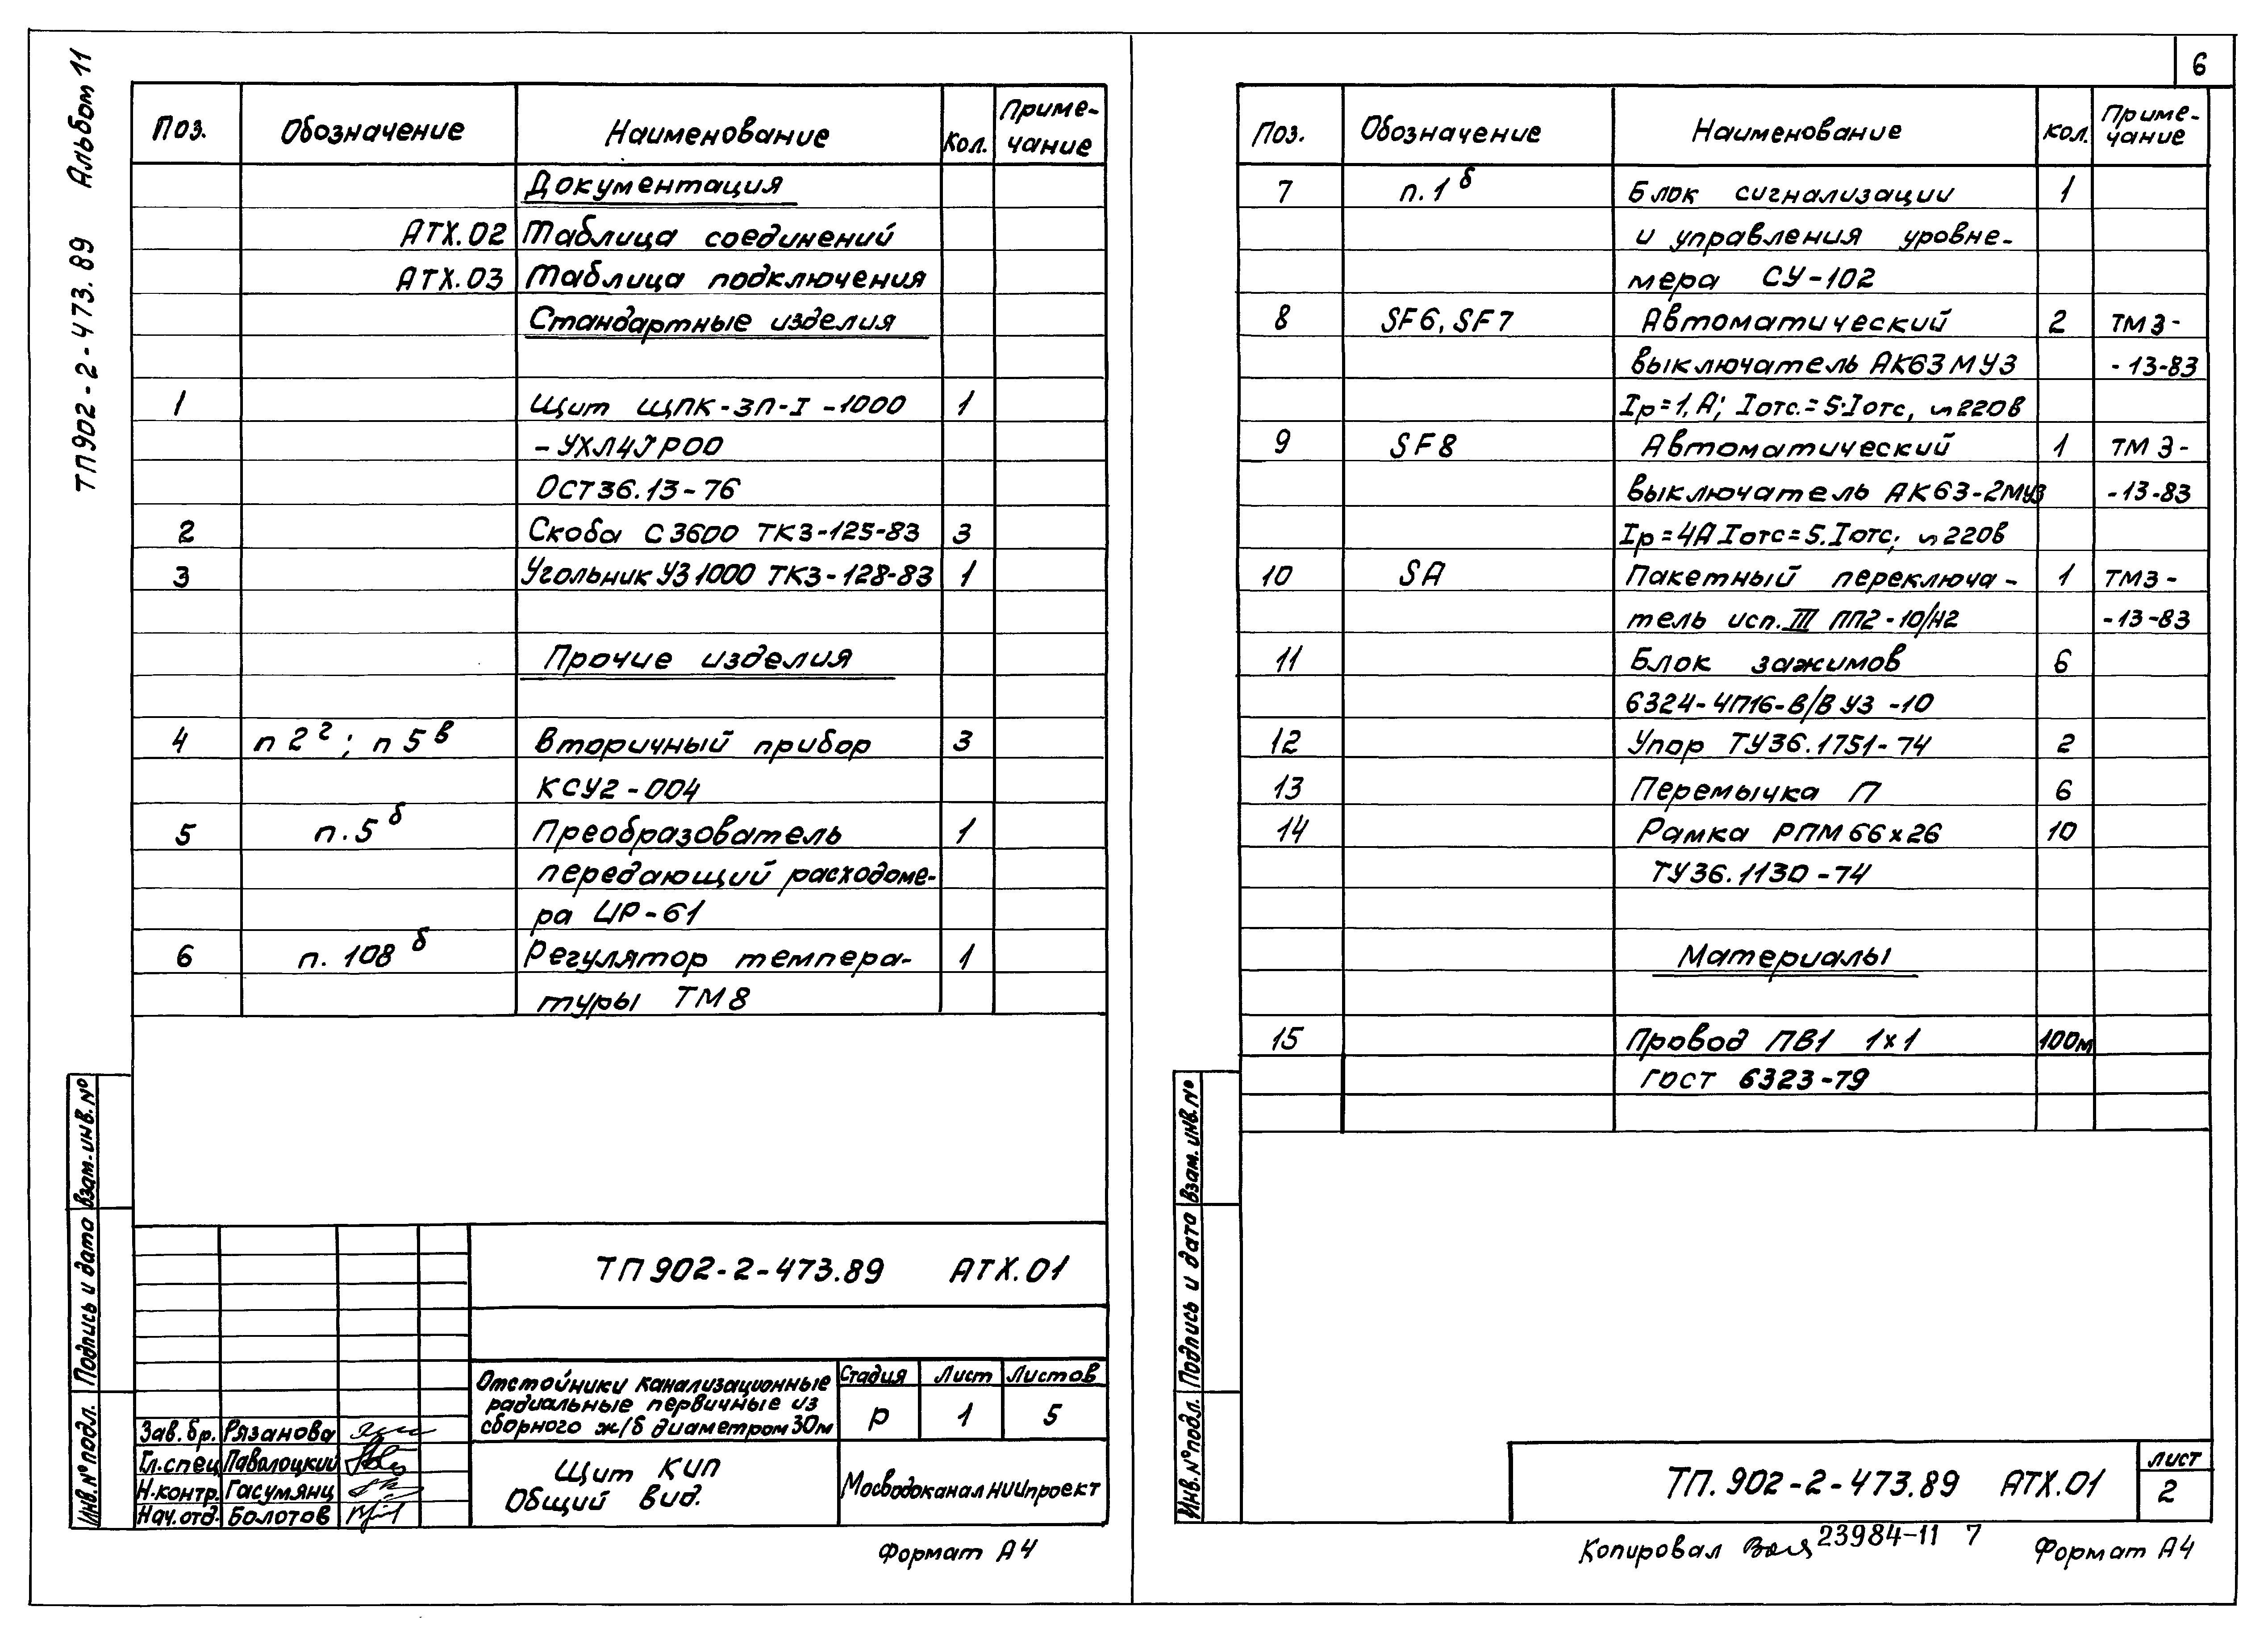 Альбом 11
ТП902-2-473.89
Поз. Обозначение Наименование Кол. Приме-
чание
Документация
АТХ.02 Таблица соединений
АТХ.03 Таблица подключения
Стандартные изделия
1 Щит ЩПК-ЗП-I-1000 1
-УХЛ4JР00
ОСТ36.13-76
2 Скоба С3600 ТК3-125-83 3
3 Угольник УЗ1000 ТК3-128-83 1
Прочие изделия
4 п2г; п5в Вторичный прибор 3
КСУ2-004
5 п.5б Преобразователь 1
передающий расходоме-
ра ИР-61
6 п.108б Регулятор темпера- 1
туры ТМ8
Взам.инв.№
Подпись и дата
Инв.№подл.
ТП902-2-473.89 АТХ.01
Отстойники канализационные
радиальные первичные из
сборного ж/б диаметром 30м
Стадия Лист Листов
Р 1 5
Зав.бр. Рязанова
Гл.спец Паволоцкий
Н.контр. Гасумянц
Нач.отд. Болотов
Щит КИП
Общий вид.
МосводоканалНИИпроект
Формат А4
6
Поз. Обозначение Наименование Кол. Приме-
чание
7 п.1б Блок сигнализации 1
и управления уровне-
мера СУ-102
8 SF6, SF7 Автоматический 2 ТМ3-
выключатель АК63МУ3 -13-83
Iр=1,А; Iотс.=5·Iотс, ~220в
9 SF8 Автоматический 1 ТМ3-
выключатель АК63-2МУ3 -13-83
Iр=4А Iотс=5.Iотс; ~220в
10 SA Пакетный переключа- 1 ТМ3-
тель исп.III ПП2-10/Н2 -13-83
11 Блок зажимов 6
Б324-4П16-В/ВУ3-10
12 Упор ТУ36.1751-74 2
13 Перемычка П 6
14 Рамка РПМ66х26 10
ТУ36.1130-74
Материалы
15 Провод ПВ1 1х1 100м
ГОСТ 6323-79
Взам.инв.№
Подпись и дата
Инв.№подл.
ТП.902-2-473.89 АТХ.01
Лист
2
Копировал 23984-11 7 Формат А4